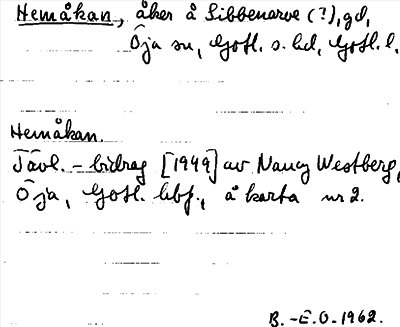 Hemåkan, åker å Sibbenarve (?), gd,
Öja sn, Gotl. s. hd, Gotl. l.
Hemåkan.
Tävl. - bidrag [1949] av Nancy Westberg,
Öja, Gotl. hbf., å karta nr 2.
B. -E.O. 1962.